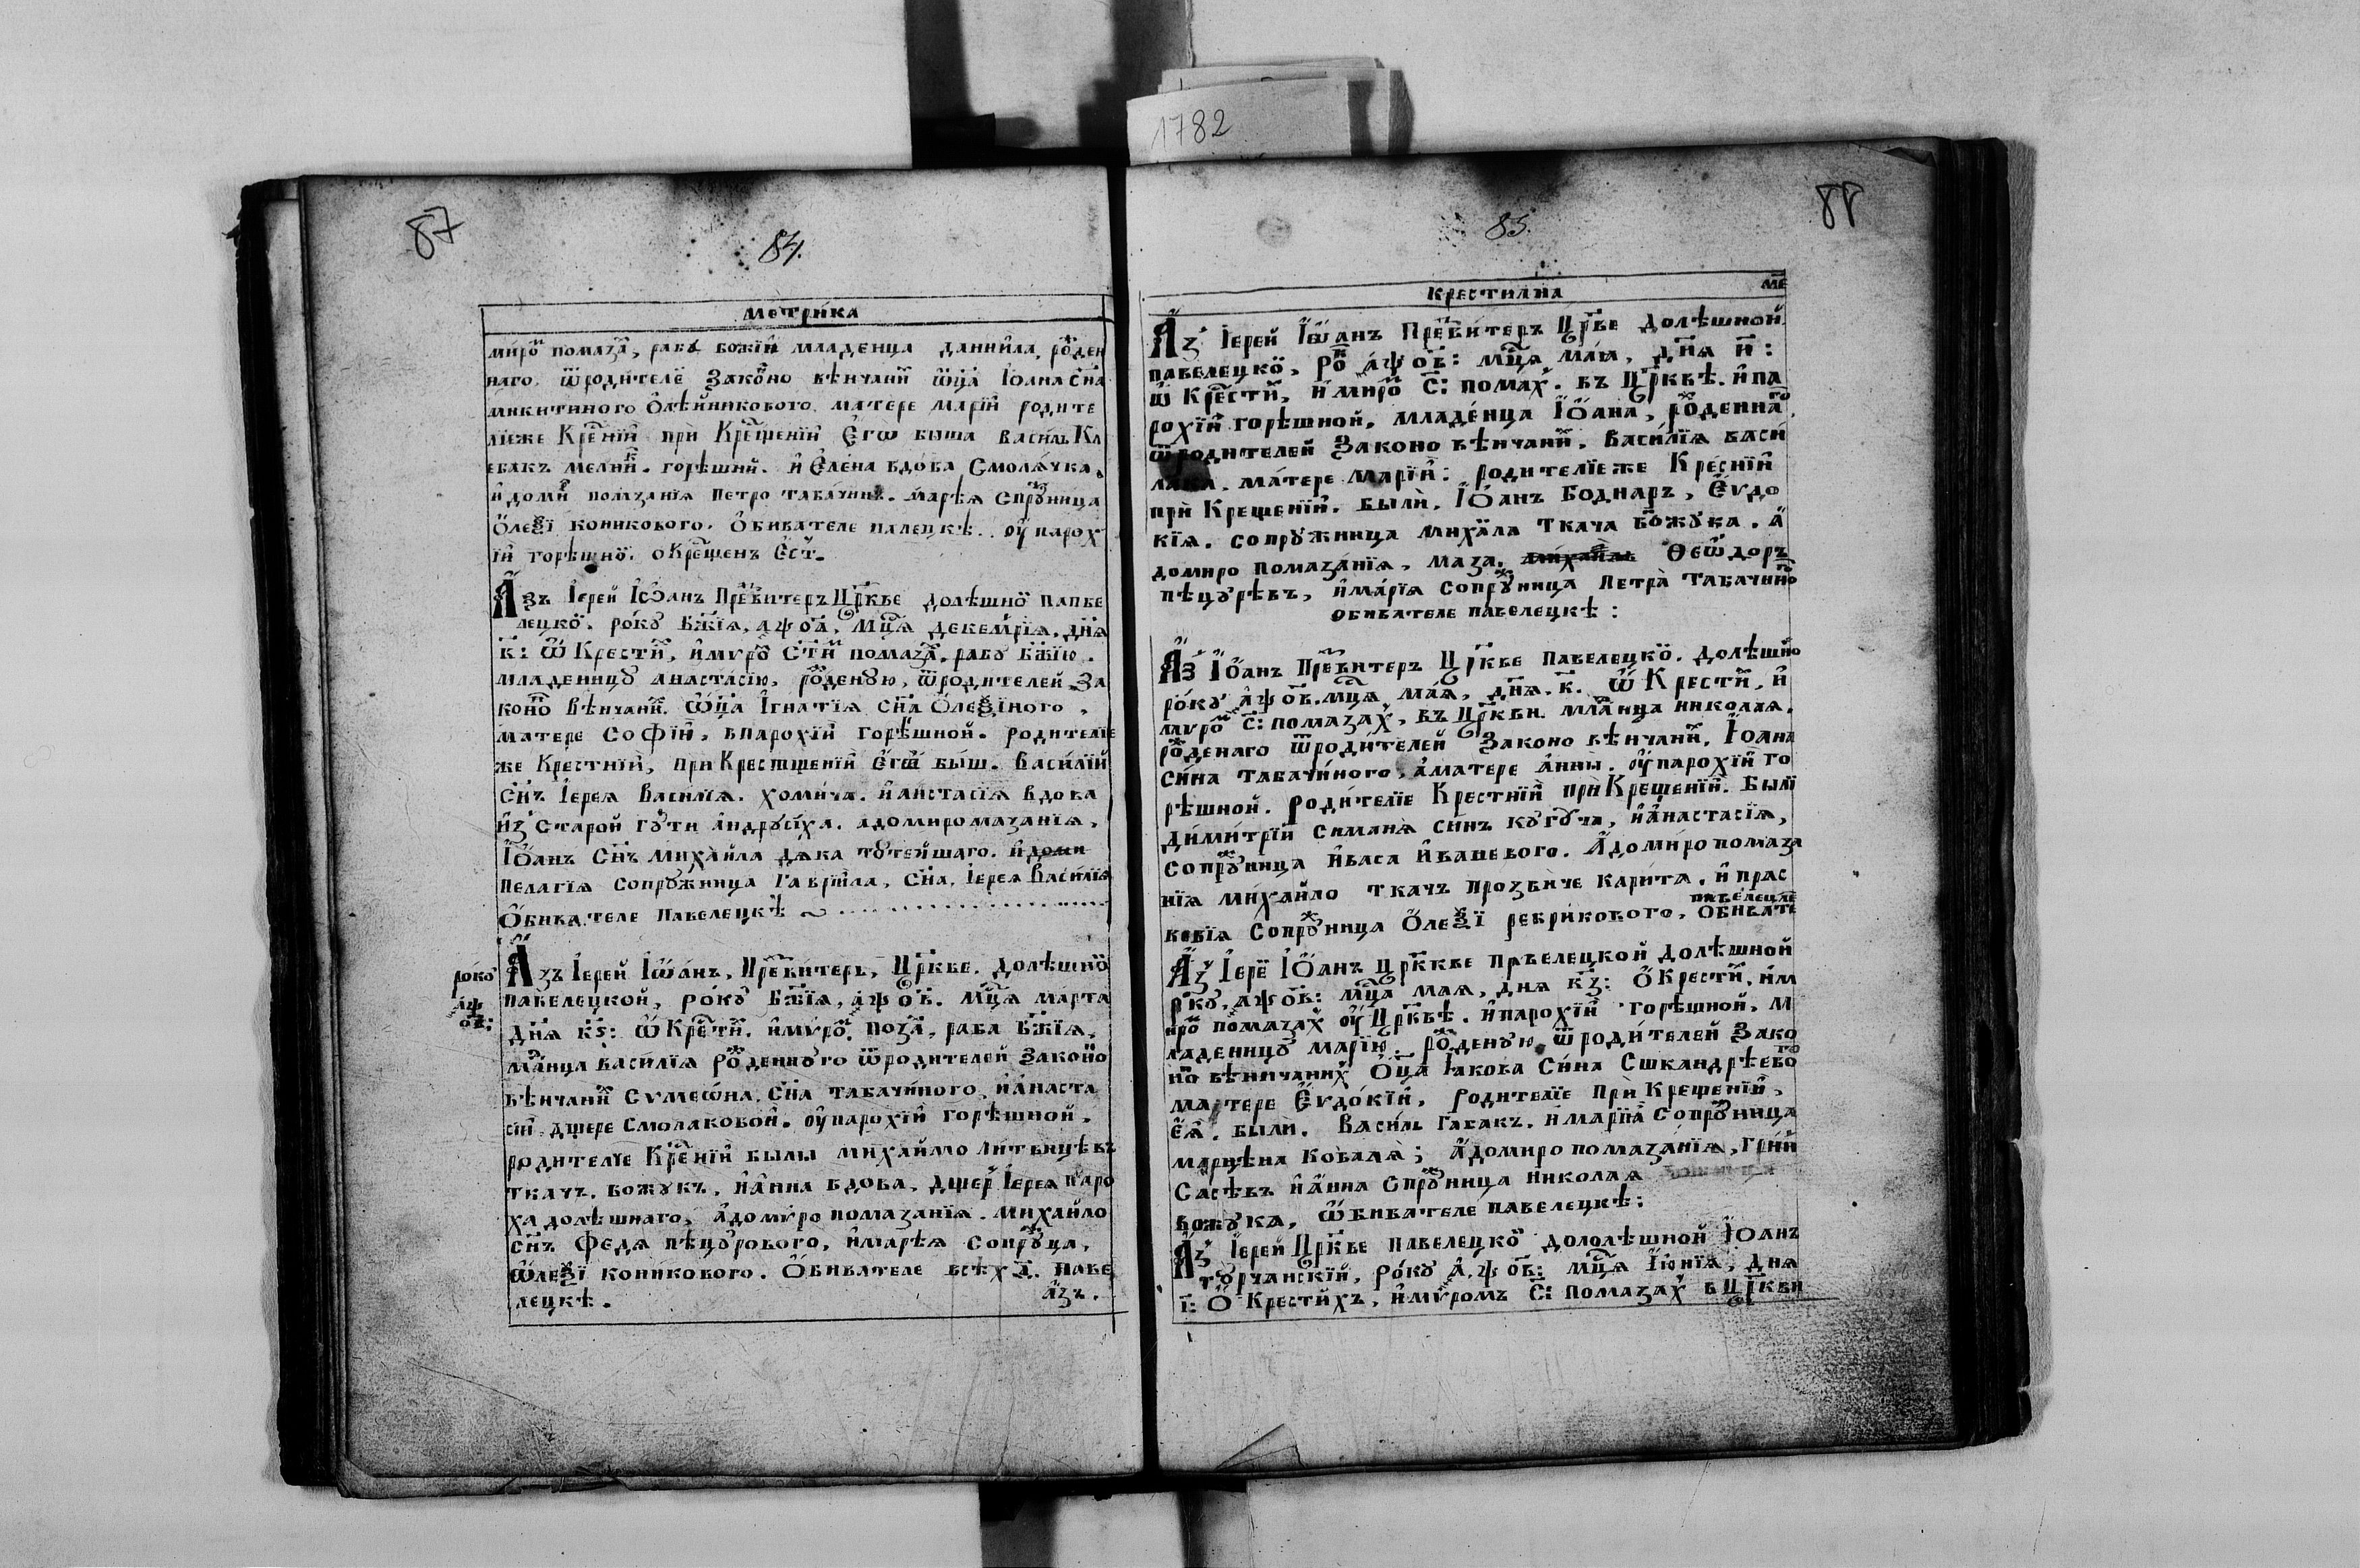 1782
87
84.
Метрика
миро помаза, рабу божїй младенца даниила, рожден
наго, ѿродителе Законо вѣнчаний ѿца Іоана сна
микитиного Олѣйникового. матере марїи родите
лїеже Кренїи при Крещенїи Єгѡ быша василь Кл
евакъ мелник. горѣшний. и Єлена вдова Смолячка,
и доми помазанїя петро табачник. марѣя спружница
Олеѯї коникового. Обивателе палецкѣ. оу парох
їи горѣшно. окрещенъ Єст.
Азъ Їерей Іѡанъ Превитеръ Цркве долѣшно папве
лецко. року бжїя, аѱоа, мца декемрїя. дня
к: ѿ Крести, имуро сти помаза. рабу бжїю.
младенницу анастасїю, рожденую, ѿродителей За
коно вѣнчани. ѿца Ігнатїя сна Олеѯїного,
матере Софїи, впарохїи горѣшной. родителїе
же Крестнїи, при Крестщенїи Єгѡ быш. василїй
снъ Їерея василїя. хомича. и анстасїя вдова
из старой гути андрусїха. адомиромазанїя,
Іѡанъ снъ михаила дяка тутейшаго. и доми
пелагїя сопружница гаврїила, сна, Їерея василїя
Обивателе павелецкѣ ~
року аѱ ов:
Азъ Їерей Іѡанъ, Превитеръ, Цркве. долѣшно
павелецкой, року бжїя, аѱ ов. мца марта
дня кѕ: ѿ Крети. имуро. поза, раба бжїя,
мланца василїя рожденнуго ѿродителей законо
вѣнчани сумеѡна. сна табачиного, и анаста
сїи дщере смолаковой. оу парохїи горѣшной.
родителїе Кренїи былы михайло литвицѣвъ
ткачъ. божукъ, и анна вдова, дщер Їерея паро
ха долѣшнаго, адомуро помазанїя. михайло
снъ Федя пѣцурового, имарѣя сопруца,
ѡлеѯї коникового. Обивателе всѣх. паве
лецкѣ.
азъ.
88
85.
Крестилна
ме
Аз Їерей Іѡанъ Превитеръ Цркве долѣшной
павелецко, ро аѱ ов: мца мая, дня и:
ѿ Крести, имиро с: помах. въ Црквѣ. и па
рохїи горѣшной. младенца Іоана, рожденнаго
ѿродителей Законо вѣнчани. василїя васи
лака. матере марїи: родителїеже Креснїи
при Крещенїи. были. Іоанъ боднаръ, Єудо
кїя. сопружница михала ткача божука. а
домиро помазанїя, маза. михайлъ Ѳеѡдоръ
пѣцурѣвъ, имарїя сопружница петра табачино
обивателе павелецкѣ:
Аз Іоанъ Превитеръ Цркве павелецко. долѣшно
року аѱ ов. мца мая, дня. к. ѿ Крести, и
муро с: помазах, въ Цркви. мланца николая.
рожденаго ѿродителей Законо вѣнчани, Іоана
сина табачиного, аматере анны. оу парохїи го
рѣшной. родителїе Крестнїи при Крещенїи. былї
димитрїй симана синъ кугуча, и анастасїя,
сопружница иваса ивашевого. Адомиропомаза
нїя михайло ткачъ прозвиче карита. и прас
ковїя сопружница Олеѯї ревриково го. обивате
павелецкѣ
Аз Їере Іоанъ Црккве првелецкой долѣшной
рку, аѱ ов: мца мая, дня кз: О Крести, им
иро помазах оу Црквѣ. и парохїи горѣшной, м
ладенницу марїю. рожденую ѿродителей Зако
но вѣничаних Оца Іакова сина Сшкандрѣево
мартере Єудокїи, родителїе при Крещенїи,
Єя. были. василь гавакъ. и марїя сопружница
марцѣна коваля; Адомиро помазанїя, грий
Сасѣвъ и анна спружница николая
божука, ѿбивателе павелецкѣ:
Аз Їерей Цркве павелецко дололѣшной Іоанъ
турчанскїй, року а.ѱ ов: мца Іюнїя, дня
ї: О Крестихъ, имуромъ с: помазах в Цркви